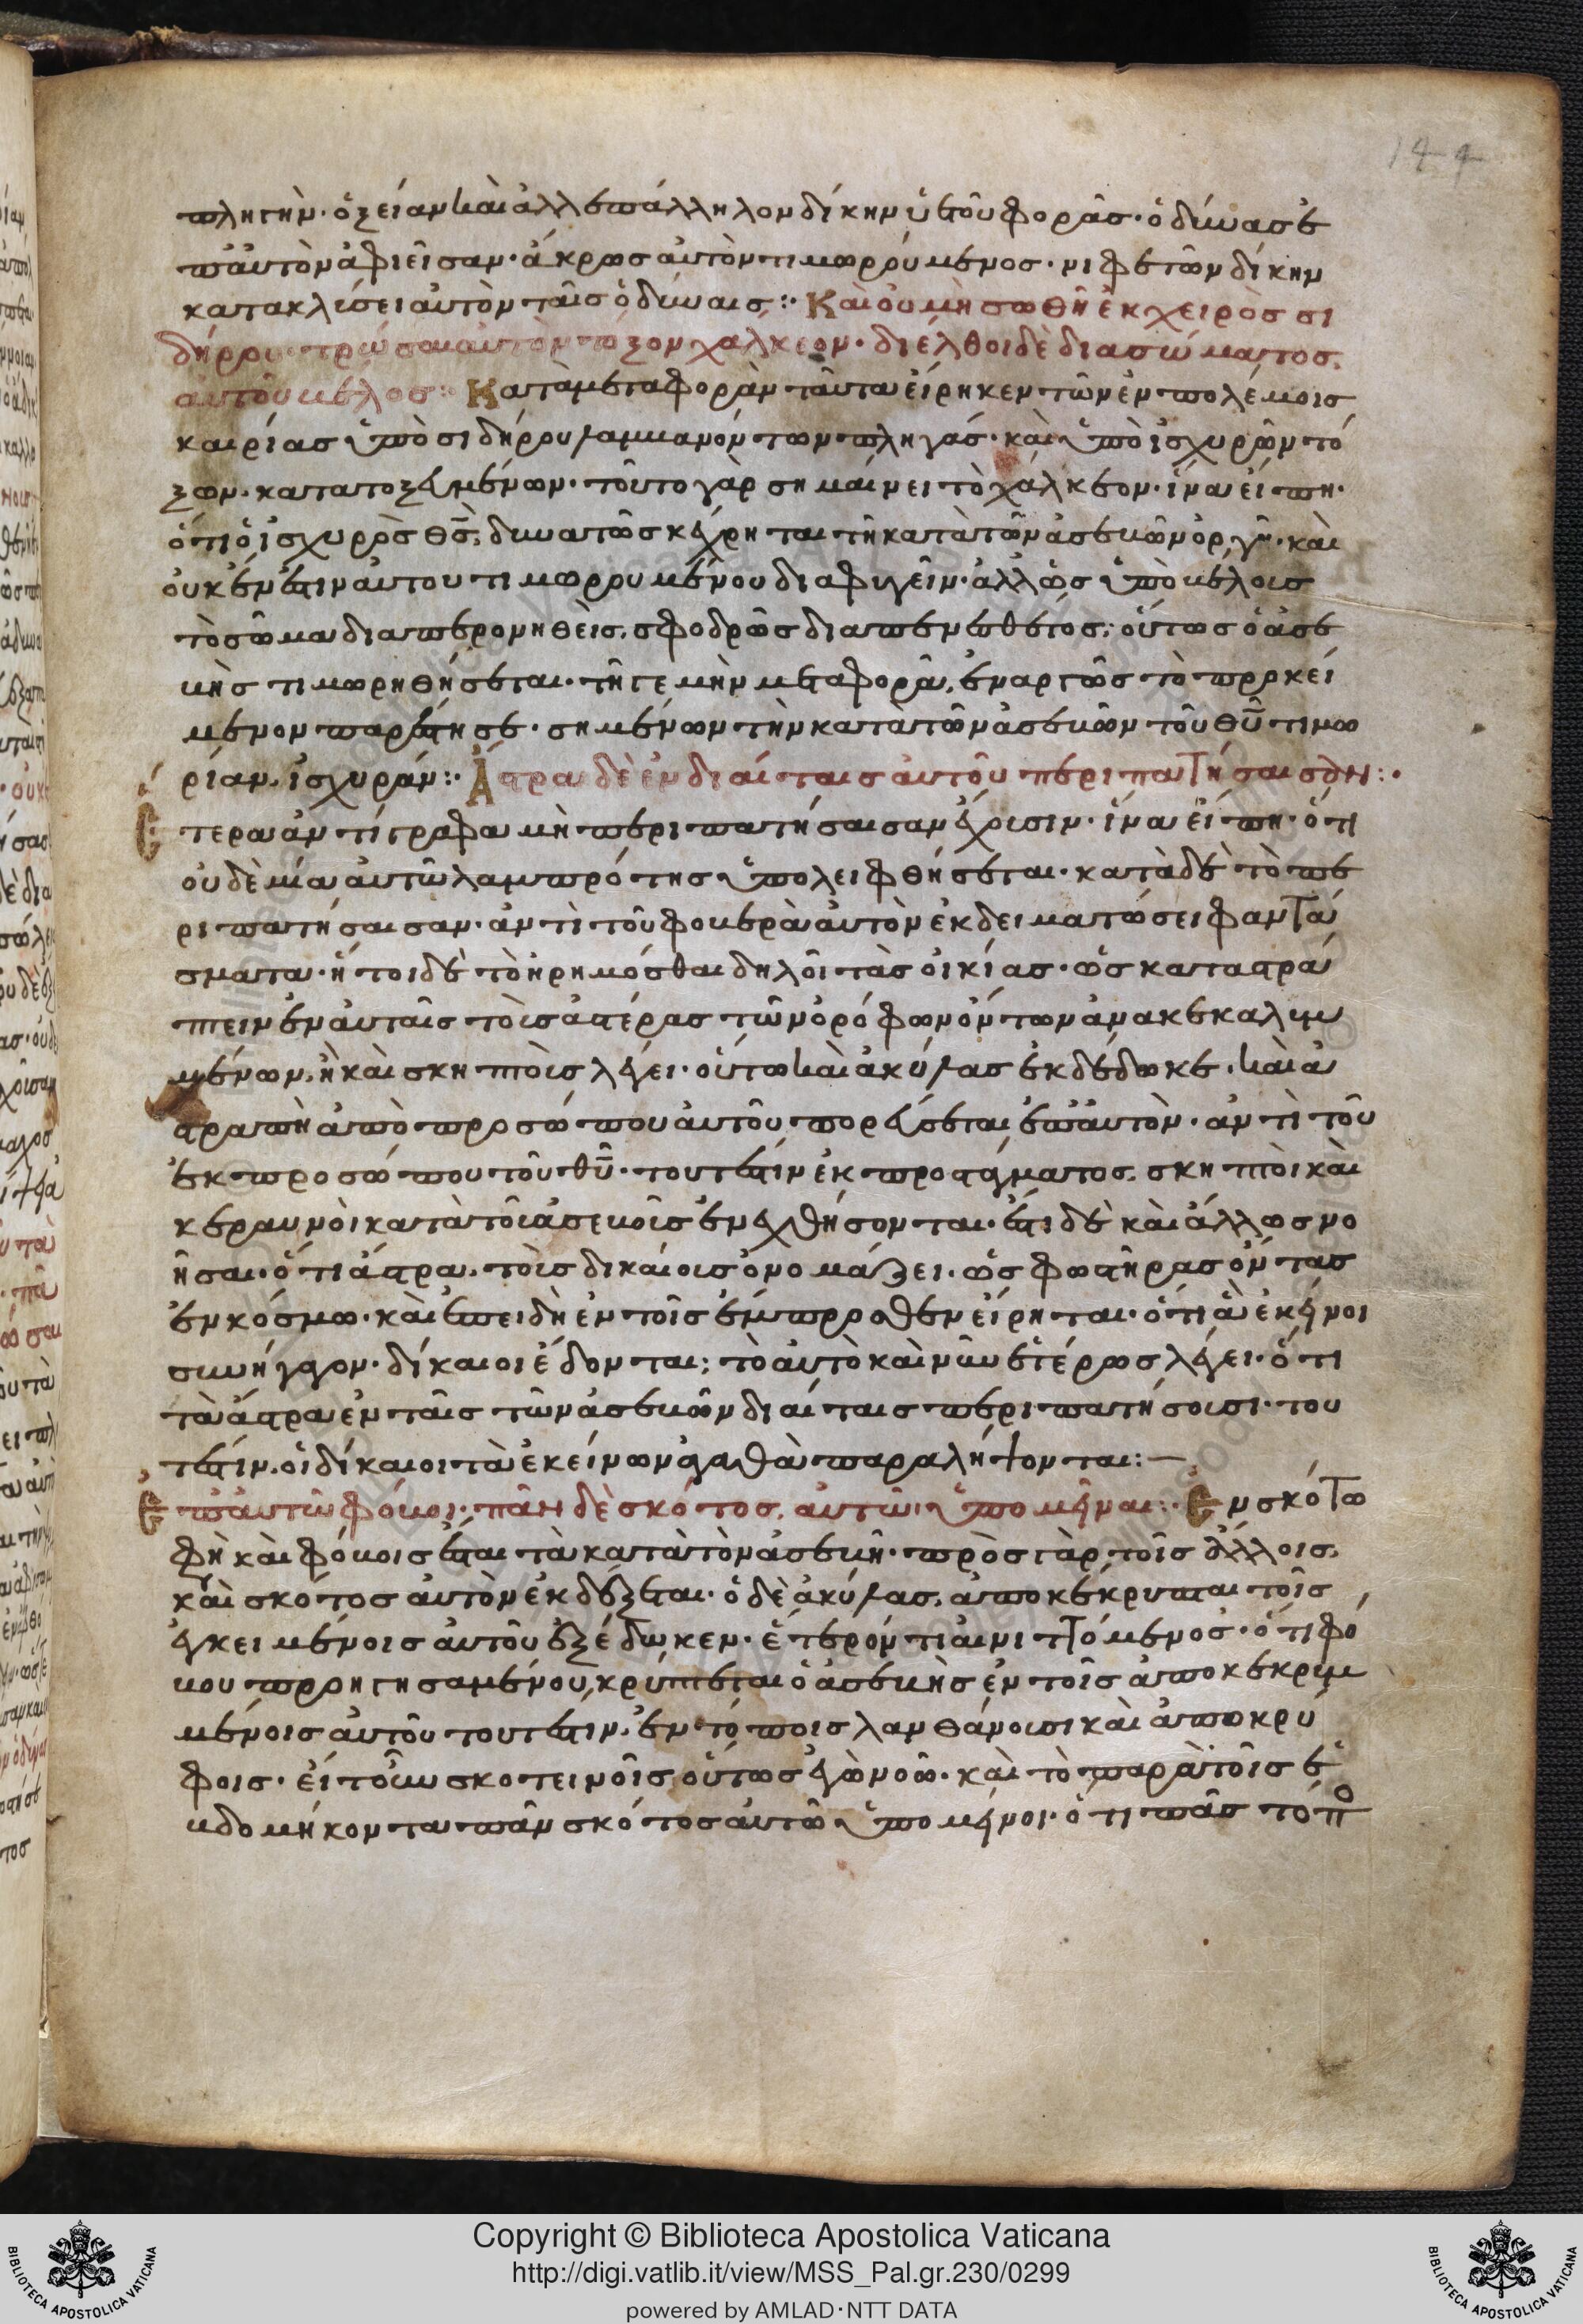 144
πληγὴν· ὀξείαν καὶ ἀλλεπάλληλον δίκην ὑετοῦ φορᾶς· ὀδύνας ἐ
π' αὐτὸν ἀφιεῖσαν· ἄκρως αὐτὸν τιμωρούμενος· νιφετῶν δίκην
κατακλύσει αὐτὸν ταῖς ὀδύναις:· Καὶ οὐ μὴ σωθῇ ἐκ χειρὸς σι
δήρου· τρώσαι αὐτὸν τόξον χάλκεον· διέλθοι δὲ διὰ σώματος
αὐτοῦ βέλος:· Κατὰ μεταφορὰν ταῦτα εἴρηκεν τῶν ἐν πολέμοις
καιρίας ὑπὸ σιδήρου λαμβανόντων πληγάς· καὶ ὑπὸ ἰσχυρῶν τό
ξων· κατατοξευμένων· τοῦτο γὰρ σημαίνει τὸ χάλκεον· ἵνα εἴπη·
ὅτι ὁ ἰσχυρὸς θς̅, δυνατῶς κέχρηται τῇ κατὰ τῶν ἀσεβῶν ὀργῇ· καὶ
οὐκ ἔνεστιν αὐτοῦ τιμωρουμένου διαφυγεῖν· ἀλλ' ὡς ὑπὸ βέλους
τὸ σῶμα διαπερονηθεὶς, σφοδρῶς διαπεμφθέντος· οὕτως ὁ ἀσε
βὴς τιμωρηθήσεται· τῇ γε μὴν μεταφορᾷ, ἐναργῶς τὸ προκεί
μενον παρέστησε· σημένων τὴν κατὰ τῶν ἀσεβῶν τοῦ θυ̅ τιμω
ρίαν, ἰσχυράν:· Ἄστρα δὲ ἐν διαίταις αὐτοῦ περιπατήσαισαν:·
Ἕτερα ἀντίγραφα μὴ περιπατήσαισαν ἔχουσιν· ἵνα εἴπη· ὅτι
οὐδεμία αὐτῶ λαμπρότης ὑπολειφθήσεται· κατὰ δὲ τὸ πε
ριπατήσαισαν· ἀντὶ τοῦ φοβερὰ αὐτὸν ἐκδειματώσει φαντά
σματα· ἤτοι δὲ τὸ ἠρημῶσθαι δηλοῖ τὰς οἰκίας· ὡς καταστρά
πτειν ἐν αὐταῖς τοὺς ἀστέρας τῶν ὀρόφων ὄντων ἀνακεκαλυμ
μένων, ἢ καὶ σκηπτοὺς λέγει· οὕτω καὶ ἀκύλας ἐκδέδωκε· καὶ ἀ
στραπὴ ἀπὸ προσώπου αὐτοῦ πορεύσεται ἐπ' αὐτὸν· ἀντὶ τοῦ
ἐκ προσώπου τοῦ θυ̅· τουτέστιν ἐκ προστάγματος, σκηπτοὶ καὶ
κεραυνοὶ κατὰ τοὺς ἀσεβεῖς ἐνεχθήσονται· ἔστι δὲ καὶ ἄλλως νο
ῆσαι· ὅτι ἄστρα, τοὺς δικαίους ὀνομάζει· ὡς φωστῆρας ὄντας
ἐν κόσμω· καὶ ἐπειδὴ ἐν τοῖς ἔμπροσθεν εἴρηται· ὅτι ἃ ἐκεῖνοι
συνήγαγον· δίκαιοι ἔδονται; τὸ αὐτὸ καὶ νῦν ἑτέρως λέγει· ὅτι
τὰ ἄστρα ἐν ταῖς τῶν ἀσεβῶν διαίταις περιπατήσουσι· του
τέστιν, οἱ δίκαιοι τὰ ἐκείνων ἀγαθὰ παραλήψονται:—
Ἐπ' αὐτῶ φόβοι· πᾶν δὲ σκότος, αὐτῶ ὑπομεῖναι:· Ἐν σκότω
φὴ καὶ φόβοις ἔσται τὰ κατὰ τὸν ἀσεβῆ· πρὸς γὰρ τοῖς ἄλλοις,
καὶ σκότος αὐτὸν ἐκδέξεται· ὁ δὲ ἀκύλας, ἀποκέκρυπται τοῖς
ἐγκειμένοις αὐτοῦ ἐξέδωκεν· ἕτερόν τι αἰνιττόμενος· ὅτι φό
βου προηγησαμένου, κρύπτεται ὁ ἀσεβὴς ἐν τοῖς ἀποκεκρυμ
μένοις αὐτοῦ τουτέστιν, ἐν τόποις λανθάνουσι καὶ ἀποκρύ
φοις· εἴτουν σκοτεινοῖς, οὕτως ἐγὼ νοῶ· καὶ τὸ παρὰ τοῖς ἑ
βδομήκοντα πᾶν σκότος αὐτῶ ὑπομεῖνοι· ὅτι πᾶς τόπο
Copyright © Biblioteca Apostolica Vaticana
http://digi.vatlib.it/view/MSS_Pal.gr.230/0299
powered by AMLAD·NTT DATA
BIBLIOTECA APOSTOLICA VATICANA
BIBLIOTECA APOSTOLICA VATICANA